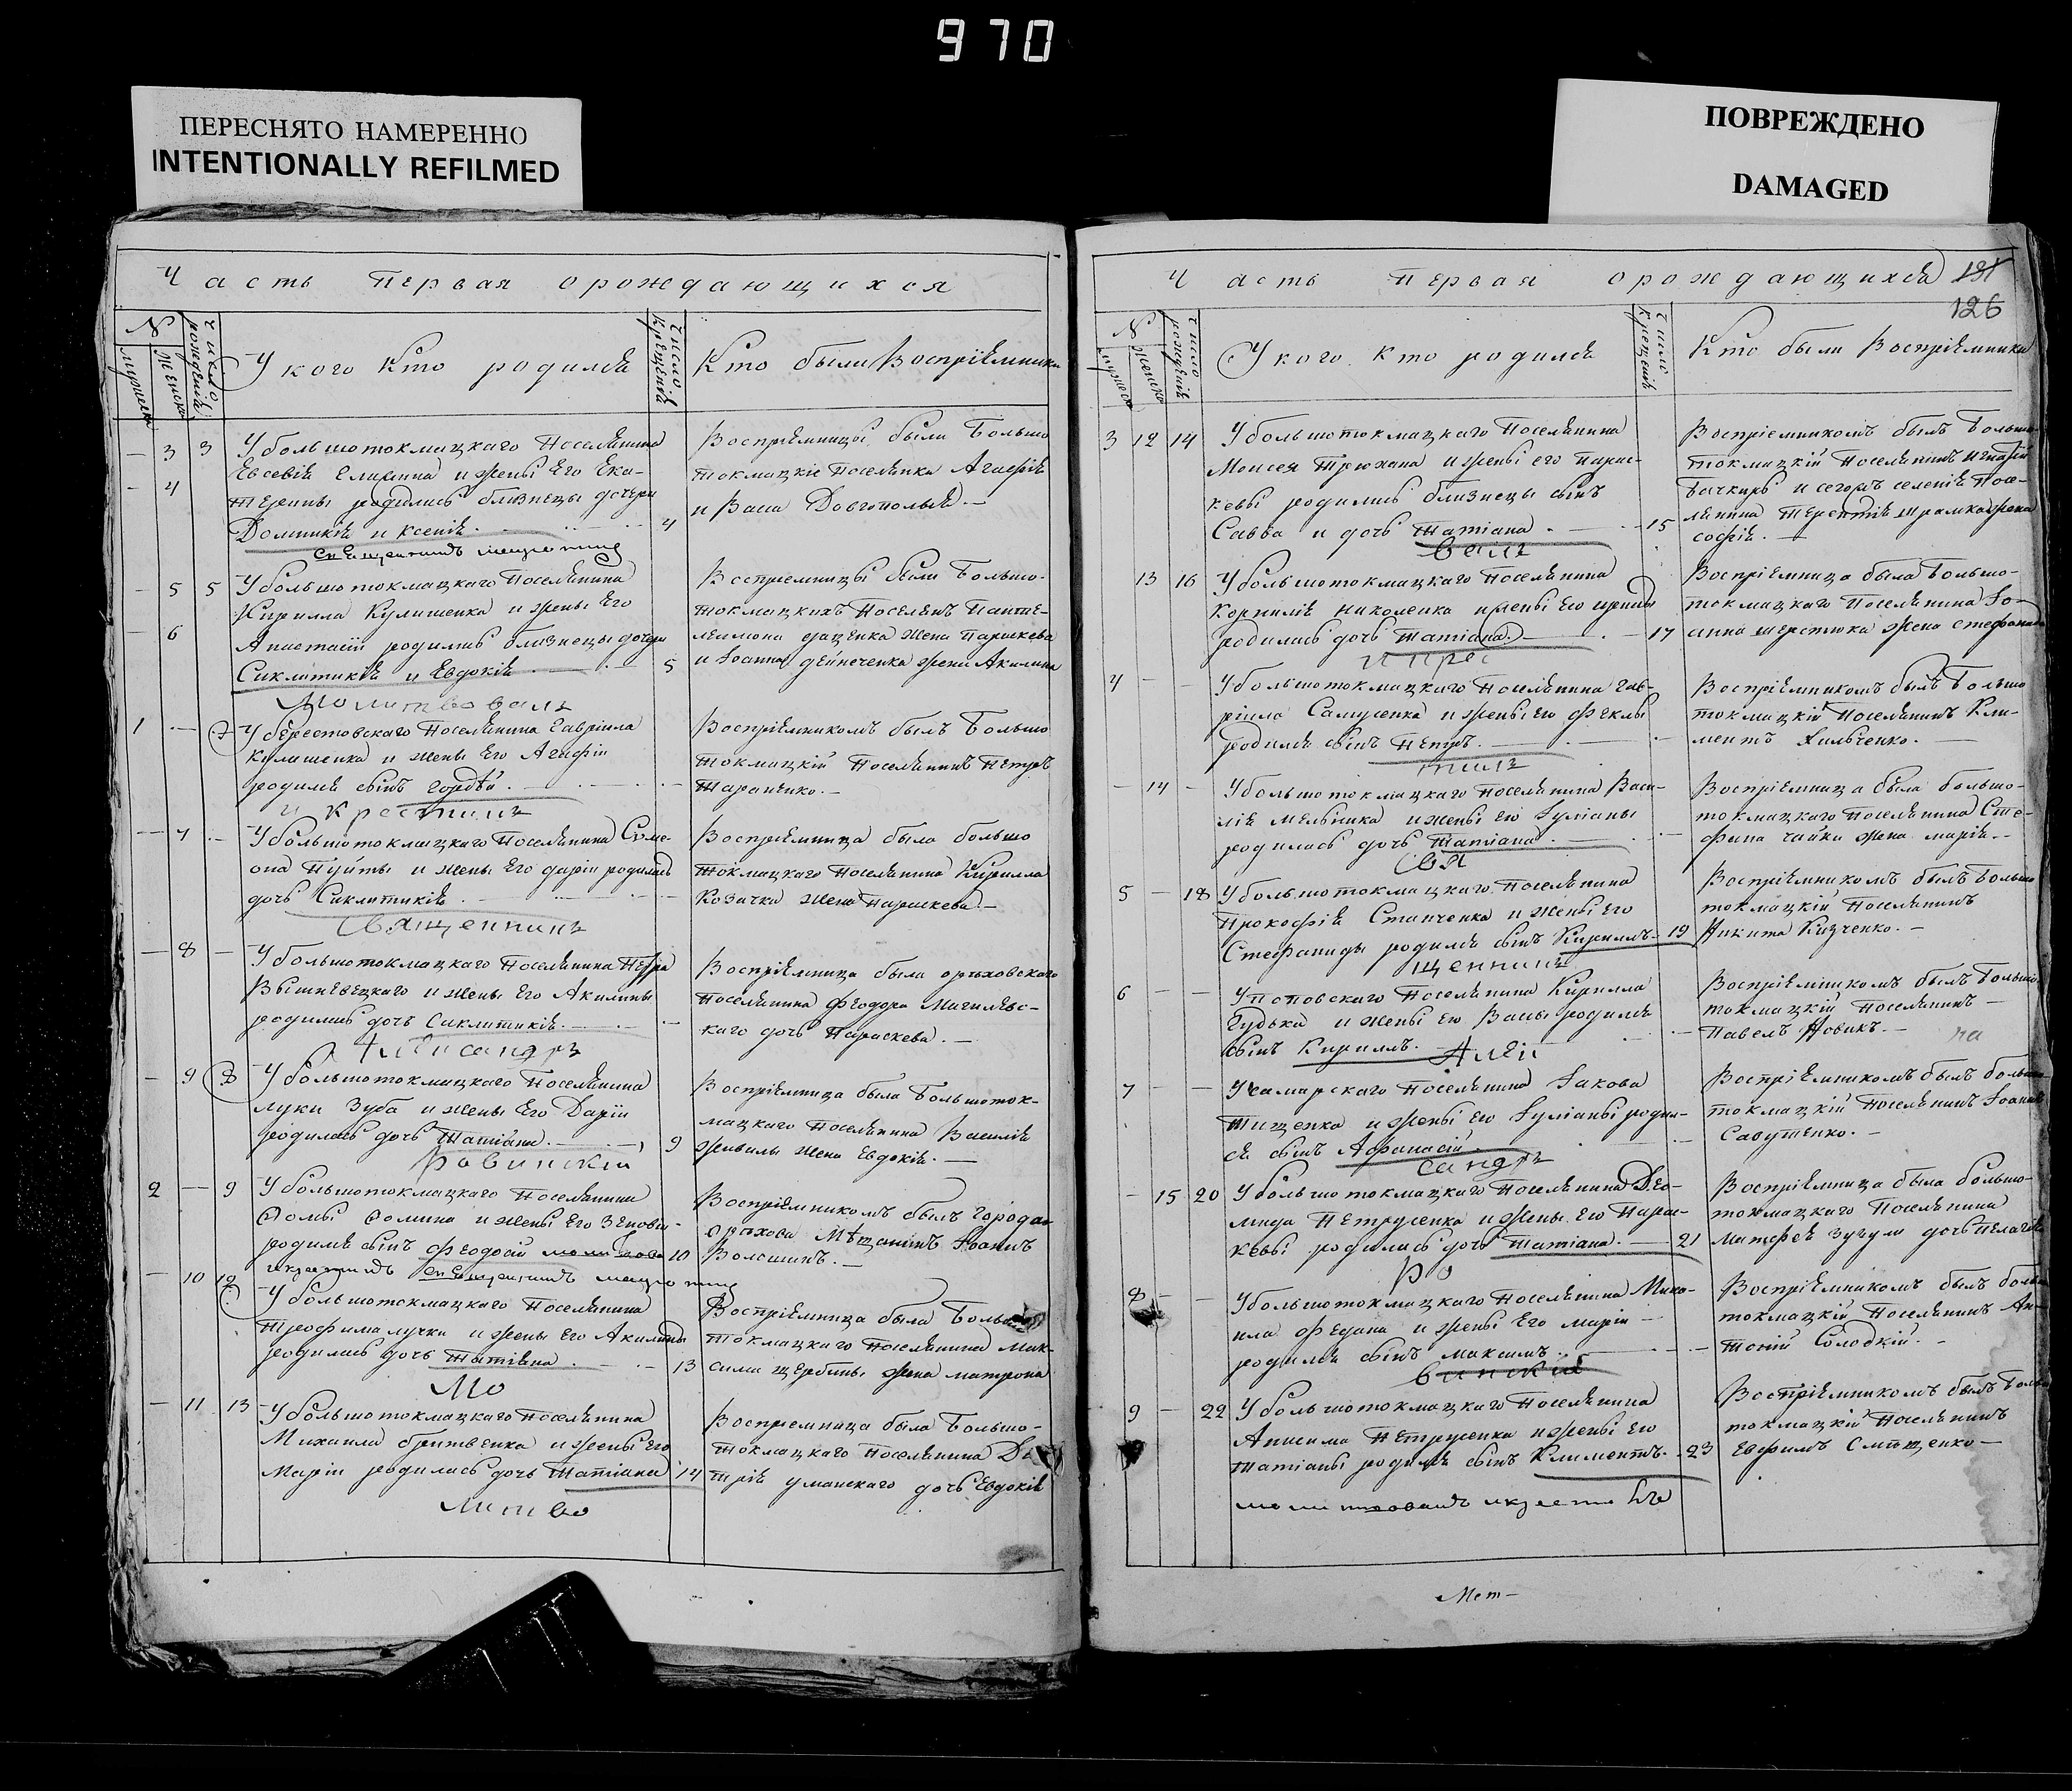 970
ПЕРЕСНЯТО НАМЕРЕННО
INTENTIONALLY REFILMED
ПОВРЕЖДЕНО
DAMAGED
Часть первая о рождающихся
№
мужеска
женска
число рождения
У кого кто родился
число крещенія
Кто были Воспріемники
3 3
У большотокмацкаго Поселянина
и жены Его Ека-
4
терины родились близнецы дочери
Домникія и Ксенія. 4
Воспріемницы были Больше
токмацкіе Поселянка Агафія
и Васса Довгополыя.
5 5
У большотокмацкаго Поселянина
Кирилла Кулишенка и жены Его
6
Анастасіи родились близнецы дочери
Сиклитикія и Евдокія. 5
Воспріемницы были Больше-
токмацкихъ Поселянъ Пантеле-
леимона Даценка жена Параскева
и Іоанна Дейнеченка жена Акилина
Молитвовалъ
1 — 7
У берестовскаго Поселянина Гавріила
Кулишенка и жены Его Агафіи
родился сынъ Гордѣй.
Воспріемникомъ былъ Больше
токмацкій Поселянинъ Петръ
Тараненко.
и крестилъ
7
У большотокмацкаго Поселянина Симе-
она и жены Его Даріи родилась
дочь Сиклитикія.
Воспріемница была большо
токмацкаго Поселянина Кирилла
Козачка жена Параскева.
Священникъ
8
У большотокмацкаго Поселянина Петра
Вышневецкаго и жены Его Акилины
родилась дочь Сиклитикія.
Воспріемница была ореховскаго
поселянина Феодора Магилевс-
каго дочь Параскева.
Александръ
9 8
У большотокмацкаго Поселянина
Луки Зуба и жены Его Даріи
родилась дочь Татіана. 9
Воспріемница была Большоток-
мацкаго Поселянина Василія
жена Евдокія.
Равинскій
2 — 9
У большотокмацкаго Поселянина
Фомы Фомина и жены Его Зеновіи
родился сынъ Феодосій 10
Воспріемникомъ былъ города
орѣхова Мѣщанинъ Іоаннъ
Волошинъ.
10 12
У большотокмацкаго Поселянина
Трофима Лучки и жены Его Акилины
родилась дочь Татіана 13
Воспріемница была Больше
токмацкаго Поселянина Мак-
сима щербины жена Матрона
Мо
11 13
У большотокмацкаго Поселянина
Михаила бритвенка и жены Его
Маріи родилась дочь Татіана 14
Воспріемница была Большо-
токмацкаго Поселянина
трія уманскаго дочь Евдокія
литво
Часть первая о рождающихся
191
126
№
мужеска
женска
число рожденія
У кого кто родился
число крещенія
Кто были Воспріемники
3 12 14
У большотокмацкаго Поселянина
Моисея Трюхана и жены его Парас-
кевы родились близнецы сынъ
Савва и дочь Татіана. 15
Воспріемникомъ былъ Больше
токмацкій Поселянинъ Игнатій
и сегожъ селенія Посе-
лянина Терентія жена
софія.
валъ
13 16
У большотокмацкаго Поселянина
Корнилія Николенка и жены Его Ирины
родилась дочь Татіана. 17
Воспріемница была Больше-
токмацкаго Поселянина Іо-
анна шерстюка жена Стефанида
и крес
4 — —
У большотокмацкаго Поселянина Гав-
ріила Самусенка и жены Его Феклы
родился сынъ Петръ.
Воспріемникомъ былъ Больше
токмацкій Поселянинъ Кли-
ментъ Хильченко.
тилъ
14
У большотокмацкаго Поселянина Васи-
лія Мельника и жены Его Іуліаны
родилась дочь Татіана
Воспріемница была большо-
токмацкаго Поселянина Сте-
фана чайки жена Марія.
Свя
5 — 18
У большотокмацкаго Поселянина
Прокофія Станченка и жены Его
Стефаниды родился сынъ Кириллъ 19
Воспріемникомъ былъ Больше
токмацкій Поселянинъ
Никита Кизченко.
щенникъ
6 — —
У поповскаго Поселянина Кирилла
Гудька и жены Его Вассы родился
сынъ Кириллъ.
Воспріемникомъ былъ Больше
токмацкій Поселянинъ
Павелъ Новикъ.
Алек
7 — —
У самарскаго Поселянина Іакова
Тищенка и жены Его Іуліаны родил-
ся сынъ Афанасій.
Воспріемникомъ былъ больше
токмацкій Поселянинъ Іоаннъ
Савутенко.
сандръ
15 20
У большотокмацкаго Поселянина Лео-
нида Петрусенка и жены Его Парас-
кевы родилась дочь Татіана. 21
Воспріемница была большо-
токмацкаго Поселянина
Матфея дочь Пелагія
Ро
8 — —
У большотокмацкаго Поселянина Миха-
ила Федана и жены Его Маріи
родился сынъ Максимъ.
Воспріемникомъ былъ больше
токмацкій Поселянинъ Ан-
тоній Солодкій.
винскій
9 — 22
У большотокмацкаго Поселянина
Анисима Петрусенка и жены Его
Татіаны родился сынъ Климентъ. 23
Воспріемникомъ былъ Больше
токмацкій Поселянинъ
Евфимъ
молитвовалъ и крестилъ
Мет-